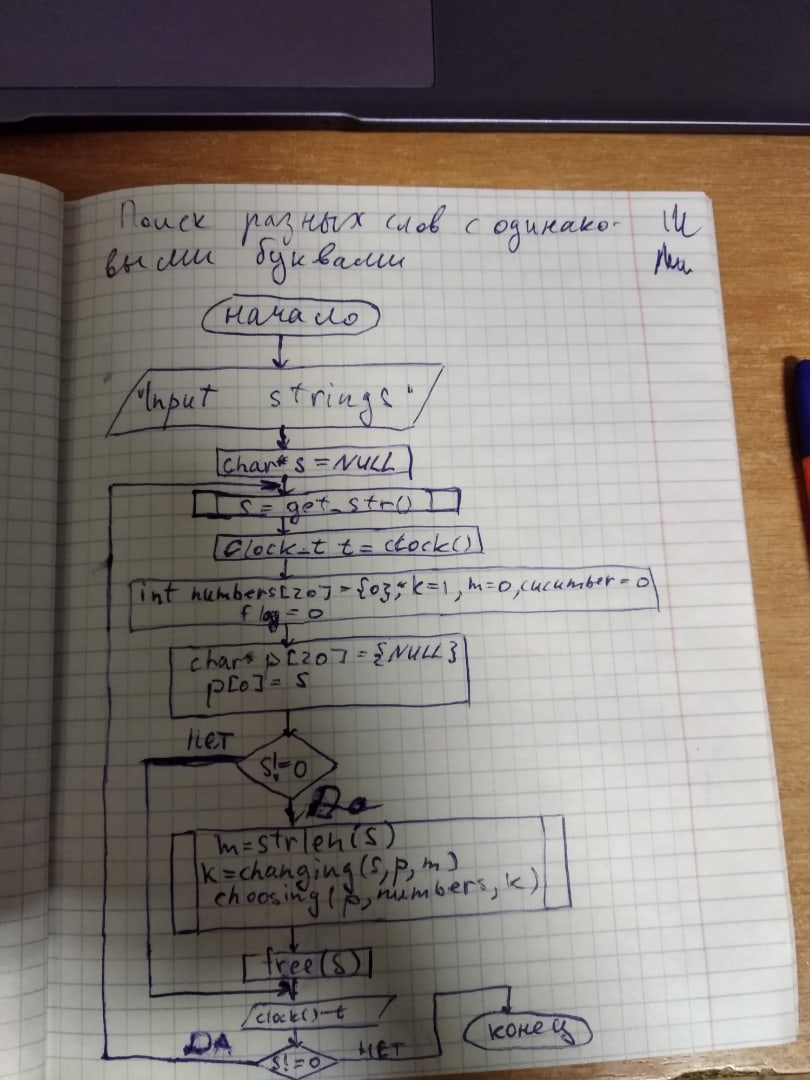 Поиск разных слов с одинако-
выми буквами
начало
"Input strings"
char* s = NULL
s = get_str()
clock_t t = clock()
int numbers[20] = {0}, k=1, m=0, cucumber = 0
flag = 0
char* p[20] = {NULL}
p[0] = s
НЕТ
s!=0
Да
m=strlen(s)
k=changing(s, p, m)
choosing(p, numbers, k)
free(s)
clock()-t
ДА
s!=0
НЕТ
конец